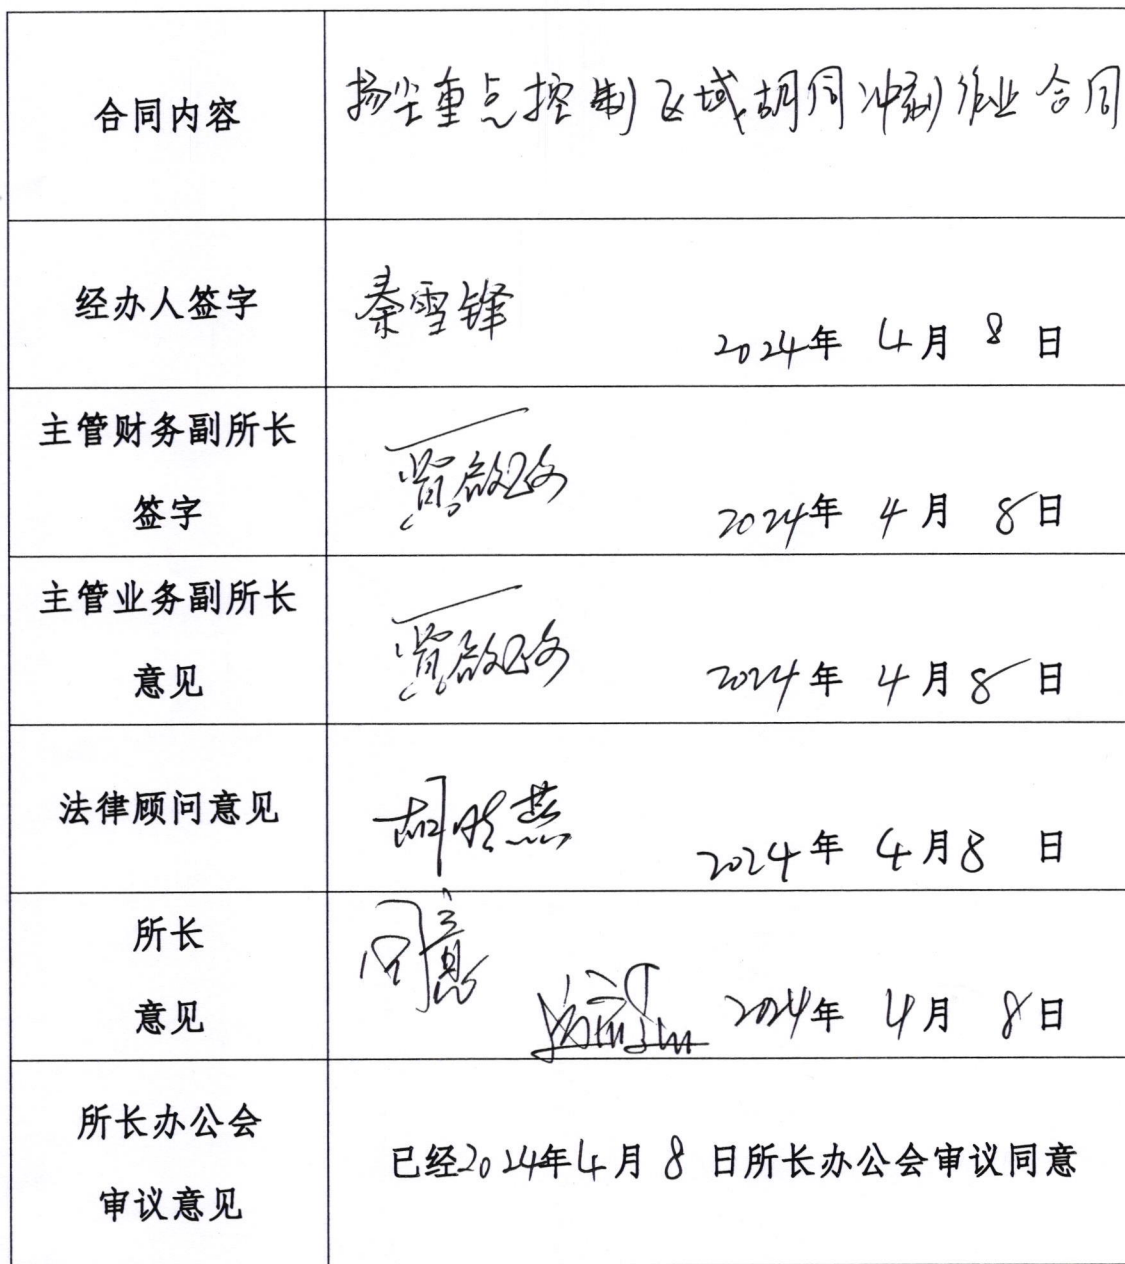 合同内容
扬尘重点控制区域胡同冲刷作业合同
经办人签字
秦雪锋
2024年 4月 8 日
主管财务副所长
签字
2024年 4月 8日
主管业务副所长
意见
2024年 4月 8 日
法律顾问意见
2024年 4月 8 日
所长
意见
同意
2024年 4月 8日
所长办公会
审议意见
已经2024年4月8日所长办公会审议同意